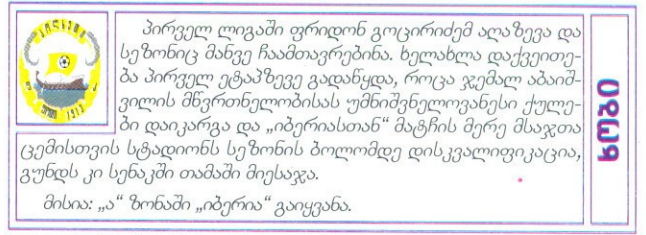 პირველ ლიგაში ფრიდონ გოცირიძემ აღაზევა და
სეზონიც მანვე ჩაამთავრებინა. ხელახლა დაქვეითე-
ბა პირველ ეტაპზევე გადაწყდა, როცა ჯემალ აბაიშ-
ვილის მწვრთნელობისას უმნიშვნელოვანესი ქულე-
ბი დაიკარგა და „იბერიასთან“ მატჩის მერე მსაჯთა
ცემისთვის სტადიონს სეზონის ბოლომდე დისკვალიფიკაცია,
გუნდს კი სენაკში თამაში მიესაჯა.
მისია: „ა“ ზონაში „იბერია“ გაიყვანა.
ხობი
კოლხეთი
ფოთი 1913